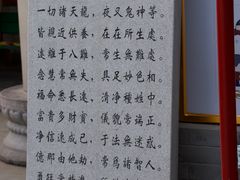 一切諸天龍，夜叉鬼神等。
皆親近供養，在在所生處。
遠離于八難，常生無難處。
念慧常無失，具足妙色相。
福命悉長遠，清淨種姓中。
富貴多財寶，儀貌常端正。
淨信遠成已，于法無迷惑。
億那由他劫，常爲諸智人。